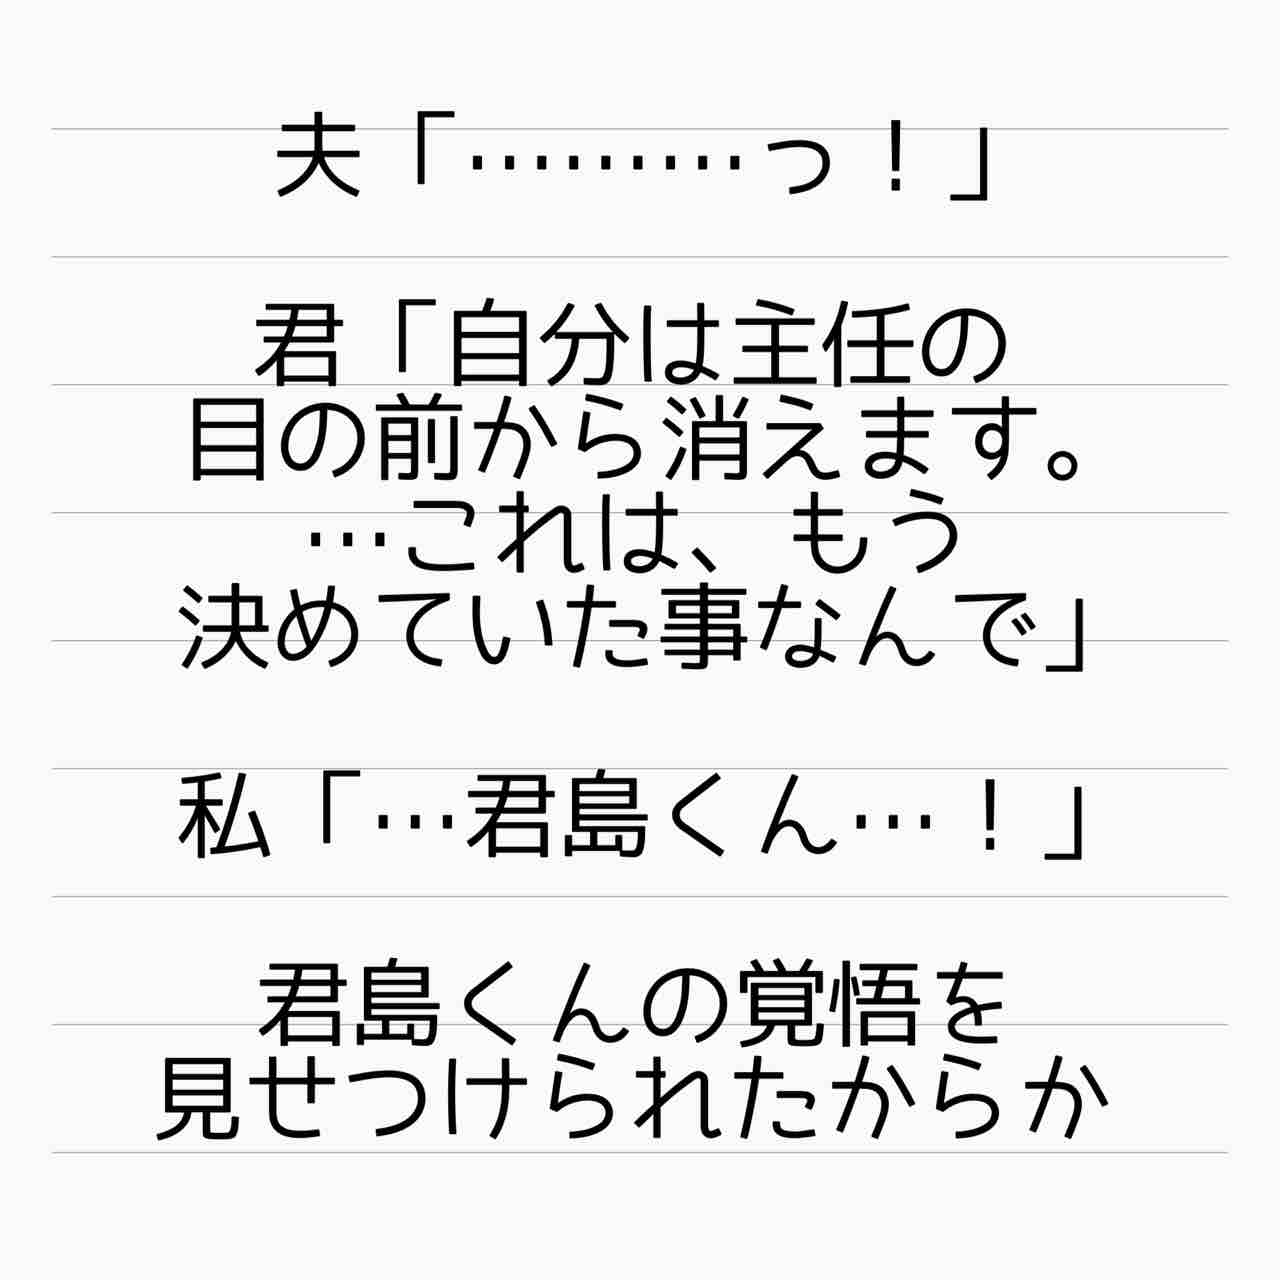 夫「………っ！」
君「自分は主任の
目の前から消えます。
…これは、もう
決めていた事なんで」
私「…君島くん…！」
君島くんの覚悟を
見せつけられたからか